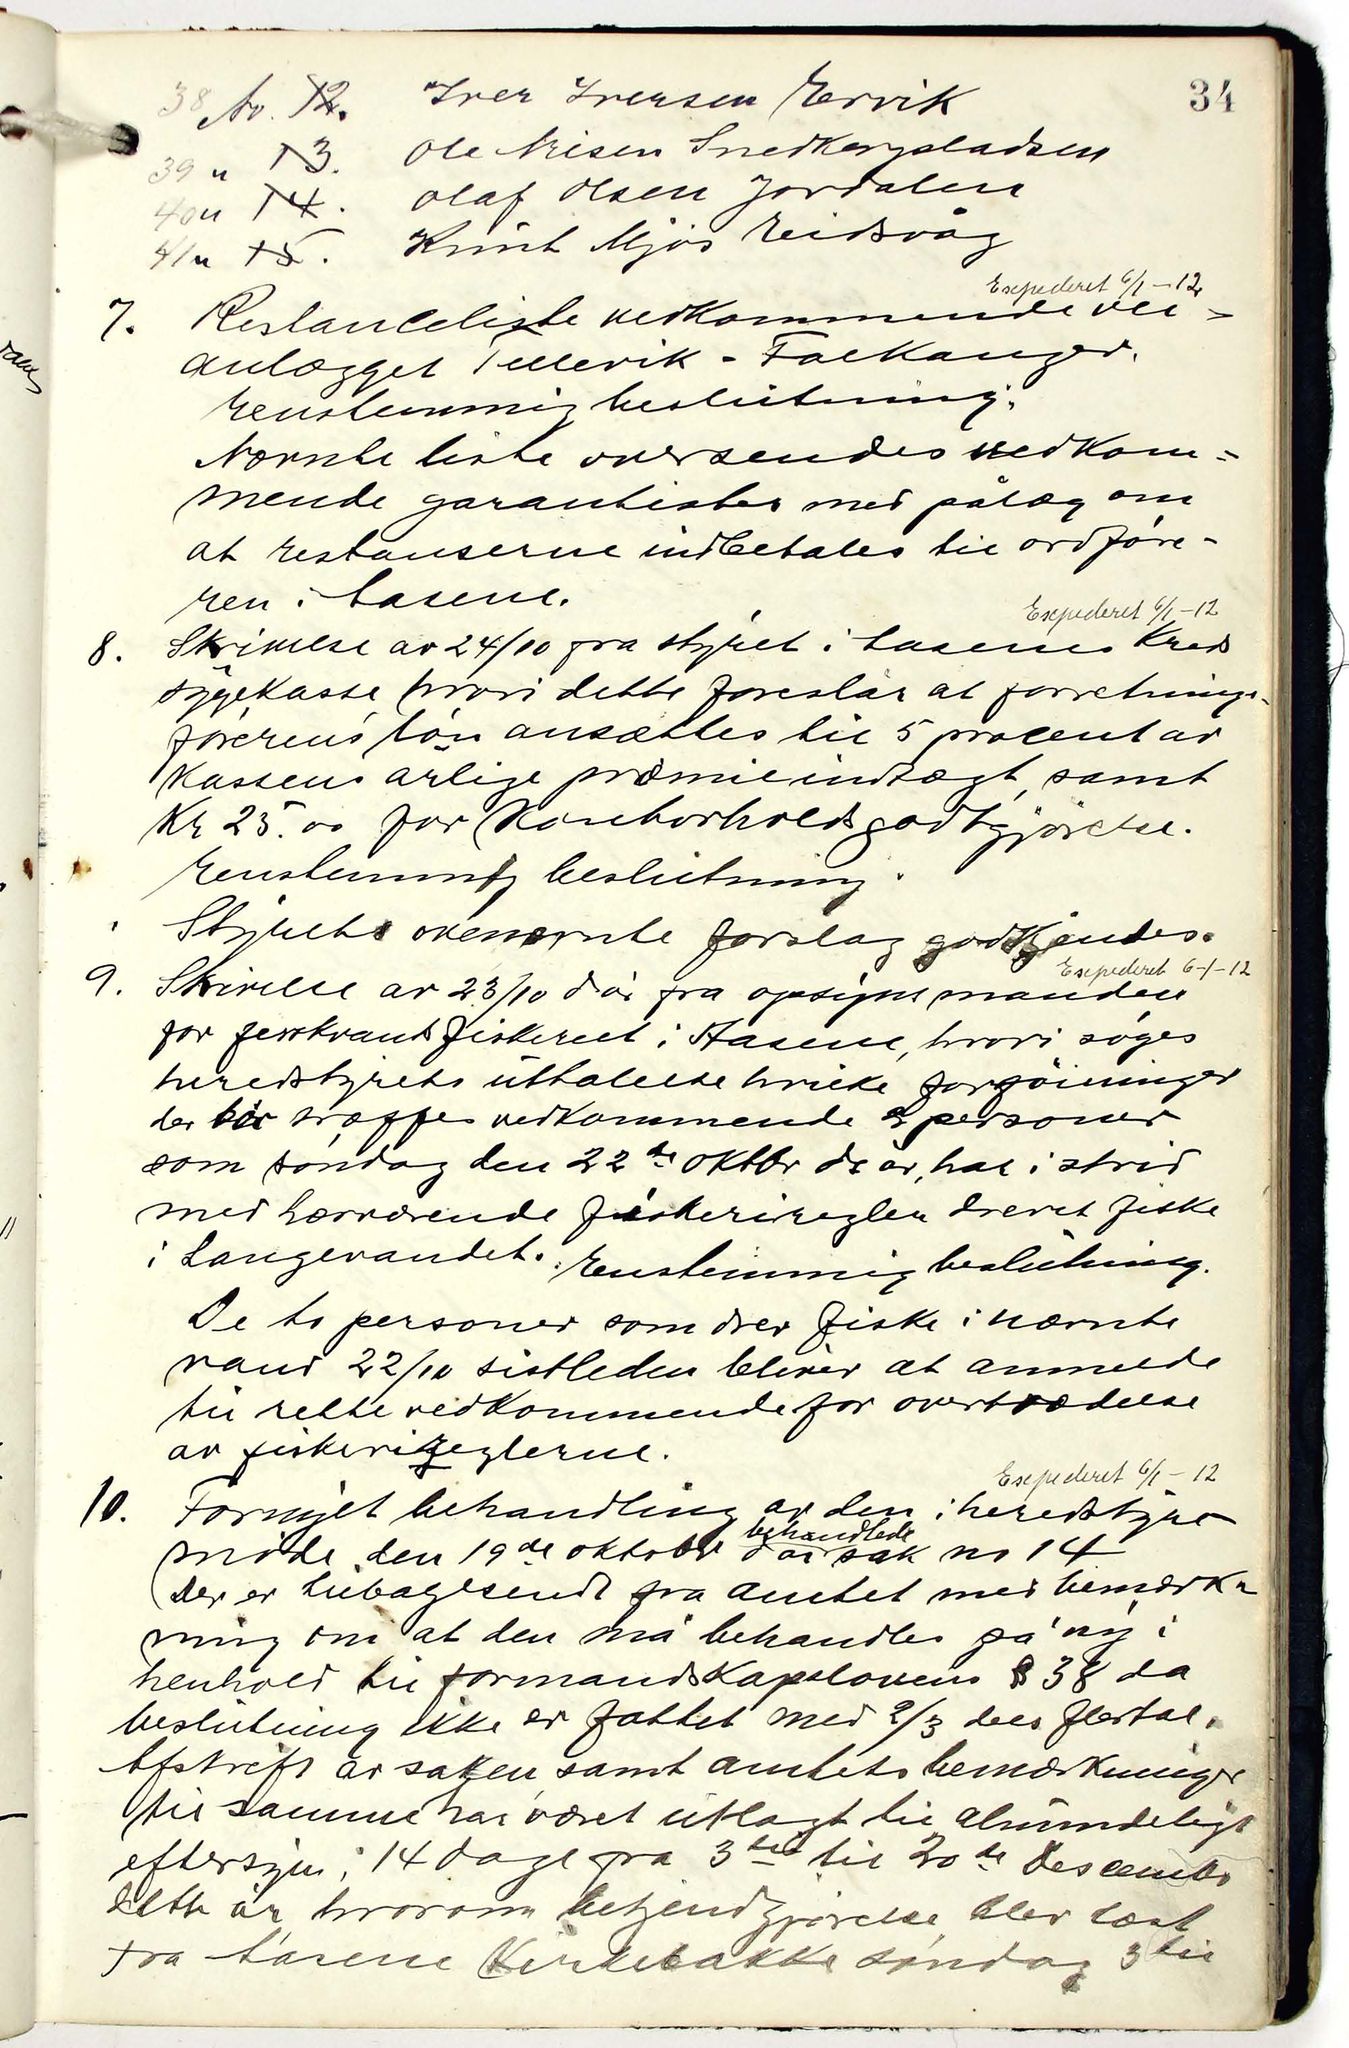 34
38 No. 12. Iver Iversen Ervik
39 " 13. Ole Nilsen Snedkerpladsen
40 " 14. Olaf Olsen Jordalen
41 " 15. Knut Mjøs Eidsvåg
Expederet 6/1-12
7. Restanceliste vedkommende vei-
anlægget Tellevik - Falkanger.
Enstemmig beslutning.
Nævnte liste oversendes vedkom-
mende garantister med pålæg om
at restanserne indbetales til ordføre-
ren i Åsene.
Expederet 6/1-12
8. Skrivelse av 24/10 fra styret i Åsene Kreds
sygekasse hvori dette foreslår at forretnings-
førerens løn ansættes til 5 procent av
kassens årlige præmieindtægt, samt
Kr 25.00 for Kontorholdsgodtgjørelse.
Enstemmig beslutning.
Styrets ovennævnte forslag godkjendes.
Expederet 6-1-12
9. Skrivelse av 23/10 då fra opsigns manden
for ferskvandsfiskeriet i Aasene, hvori søges
heredstyrets uttalelse hvilke forføininger
der bør træffes vedkommende 2 personer
som søndag den 22de oktbr då, har i strid
med hærværende fiskeriregler drevet fiske
i Langevandet. Enstemmig beslutning.
De to personer som drev fiske i nævnte
vand 22/10 sistleden blir at anmelde
til rette vedkommende for overtrædelse
av fiskerireglerne.
Expederet 6/1-12
10. Fornyet behandling av den i heredstyre
møde den 19de oktober då behandlede sak no 14
Der er tilbagesendt fra amtet med bemærk-
ning om at den må behandles på ny i
henhold til formandskapslovens § 38 da
beslutning ikke er fattet med 2/3 dels flertal.
Afskrift av saken samt amtets bemærkninger
til samme har været utlagt til almindeligt
eftersyn i 14 dage fra 3die til 20de Descembr
dette år, hvorom bekjendtgjørelse blev læst
fra Åsene Kirkebakke søndag 3die